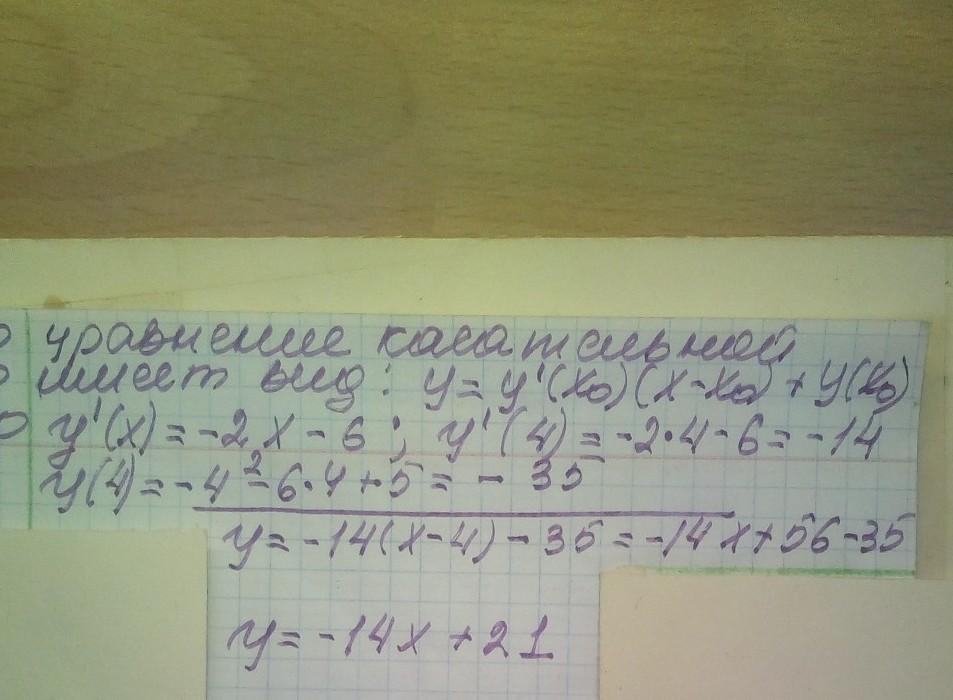 уравнение касательной
имеет вид: y = y'(x₀)(x-x₀)+y(x₀)
y'(x) = -2x - 6; y'(4) = -2·4-6 = -14
y(4) = -4²-6·4+5 = - 35
y = -14(x-4) - 35 = -14x+56-35
y = -14x +21